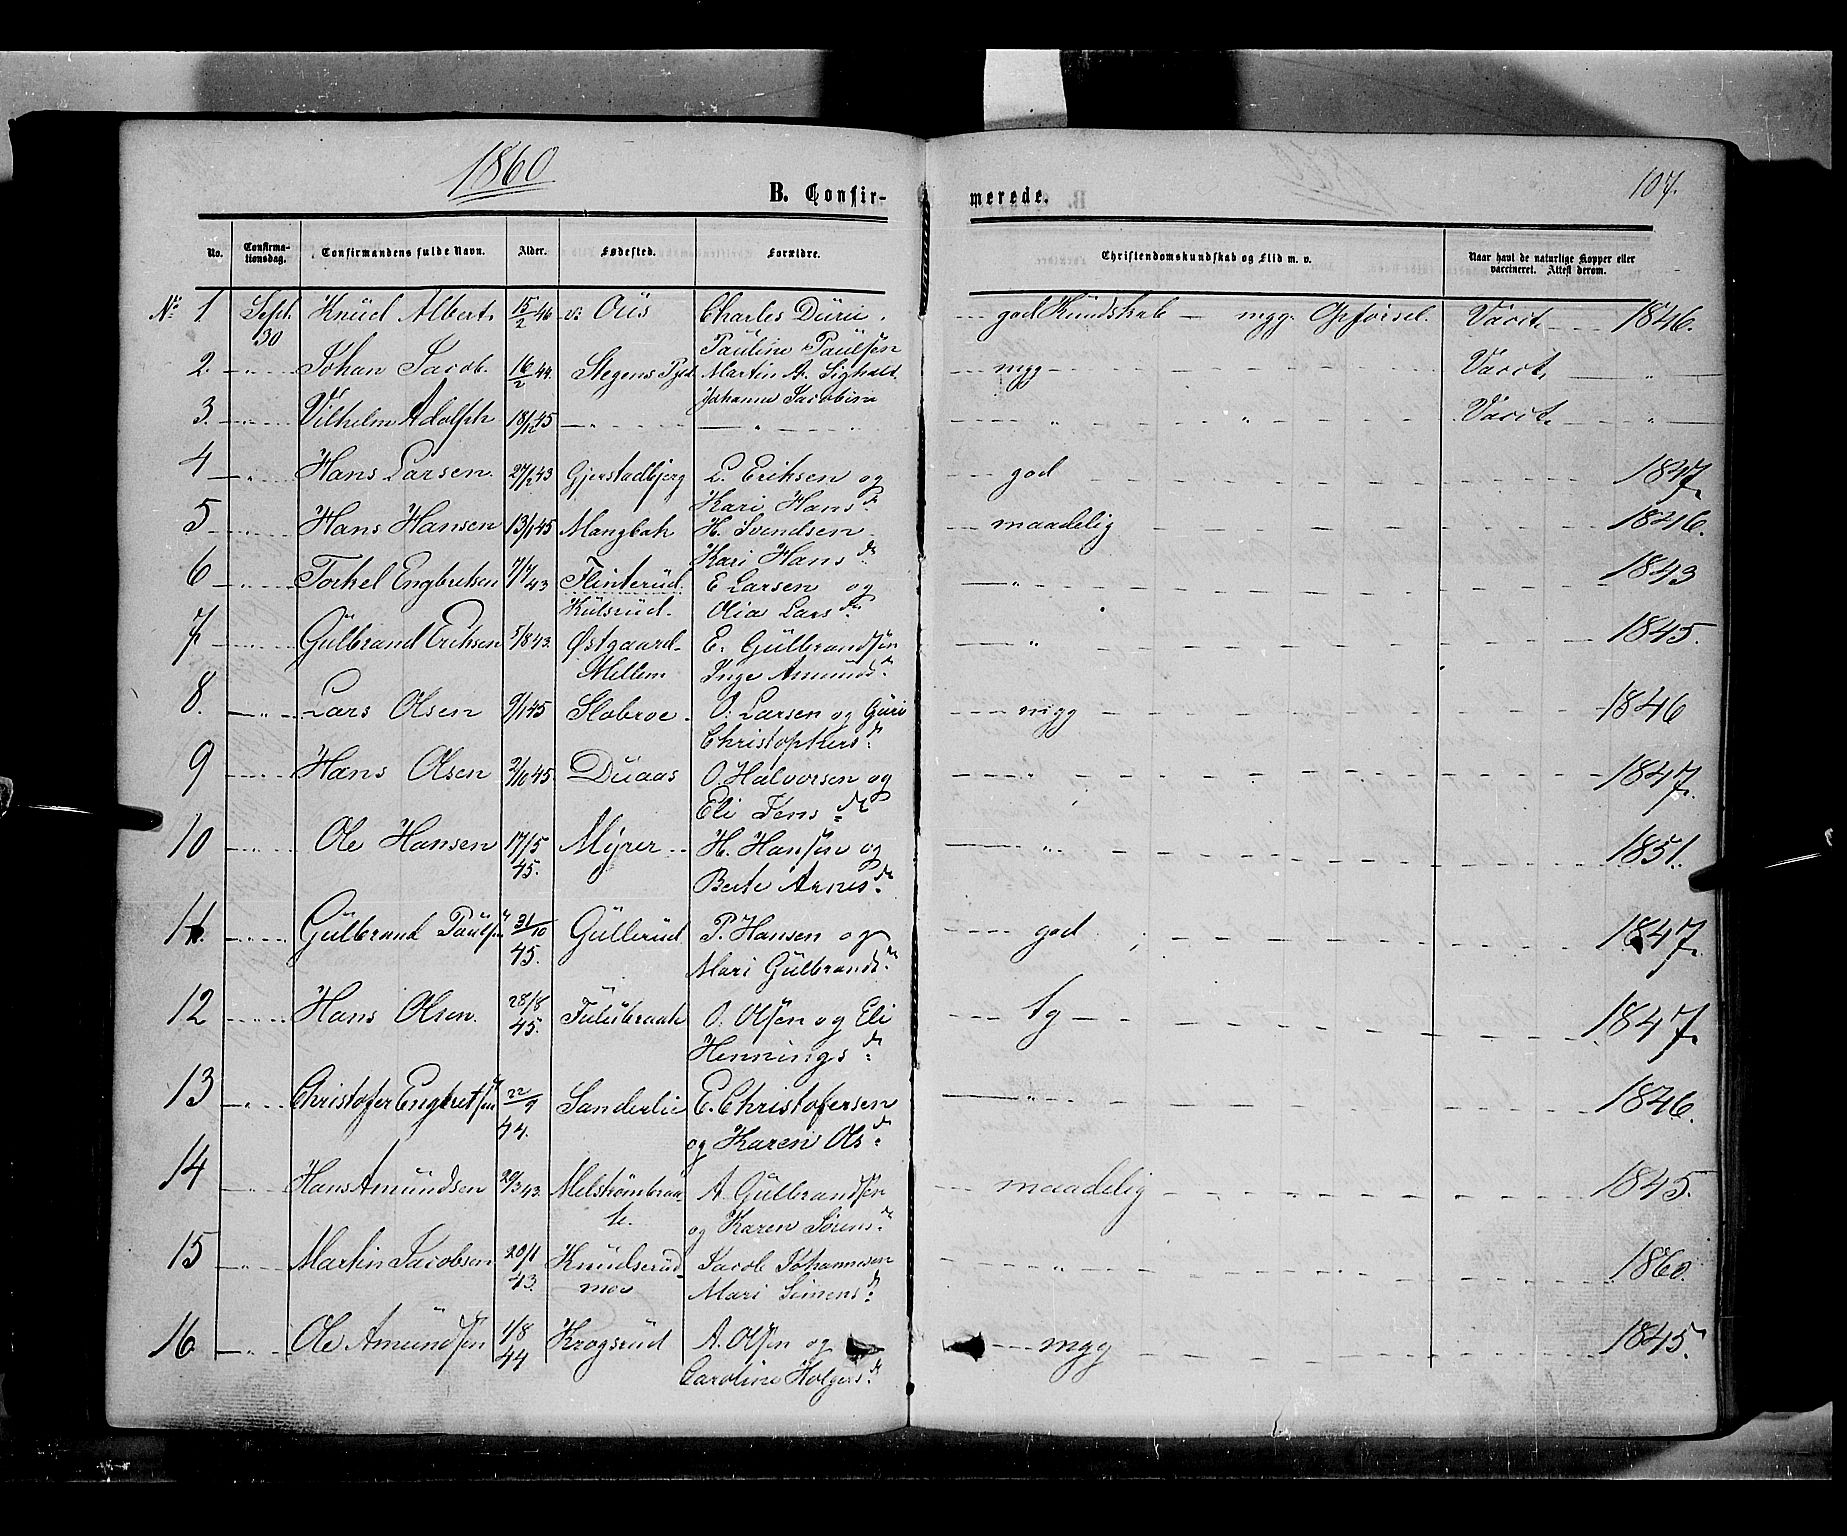 1860
B. Confir-
merede.
107.
No. Confirma-tionsdag. Confirmandens fulde Navn. Alder. Fødested. Forældre. Christendomskundskab og Flid m. v. Naar havt de naturlige Kopper eller vaccineret. Attest derom.
No 1 Sept. 30 Knud Albert 15/2 46 Charles Durii. god Kundskab — mgg. Opførsel. Vacct. 1846.
Pauline Paulsen
2. Johan Jacob 16/2 44. Stegens Pgld Martin A. mgg Vacct.
Johanna Jacobina
3. Vilhelm Adolph 18/12 45 " Vacct.
4 Hans Larsen. 27/12 43 Gjerstadbjerg L. Eriksen og god 1847.
Kari Hansdr
5 Hans Hansen 13/1 45 Mangbak H. Svendsen maadelig 1846.
Kari Hansdr
6 Torkel Engbretsen 7/7 43 Flinterud E Larsen og " 1843
Kulsrud. Olia Larsdr
7 Gulbrand Eriksen 5/8 43. Østgaard- E. Gulbrandsen " 1845.
Mellem Inge Amundsdr
8. Lars Olsen 9/1 45 Slobroe O. Larsen og Guri mgg 1846
Christophersdr
9 Hans Olsen 2/10 45 Duaas O. Halvorsen og " 1847.
Eli Jensdr
10 Ole Hansen 17/5 45. Myrer H. Hansen og " 1851.
Berte Arnesdr
11. Gulbrand Paulsen 31/10 45. Gullerud P. Hansen og god 1847.
Mari Gulbrandsdr
12 Hans Olsen. 28/8 45. Fulubraate O. Olsen og Eli tg 1847.
Henningsdr
13 Christofer Engbretsen 22/9 44. Sanderlie E. Christofersen " 1846.
og Karen Olsdr
14 Hans Amundsen 29/3 43. Melstrømbraa- A. Gulbrandsen maadelig 1845.
te. og Karen Sørensdr
15 Martin Jacobsen 20/1 43. Knudserud- Jacob Johannesen " 1860.
moe Mari Simensdr
16 Ole Amundsen 1/8 44 Krogsrud A. Olsen og mgg 1845.
Caroline Holgersdr